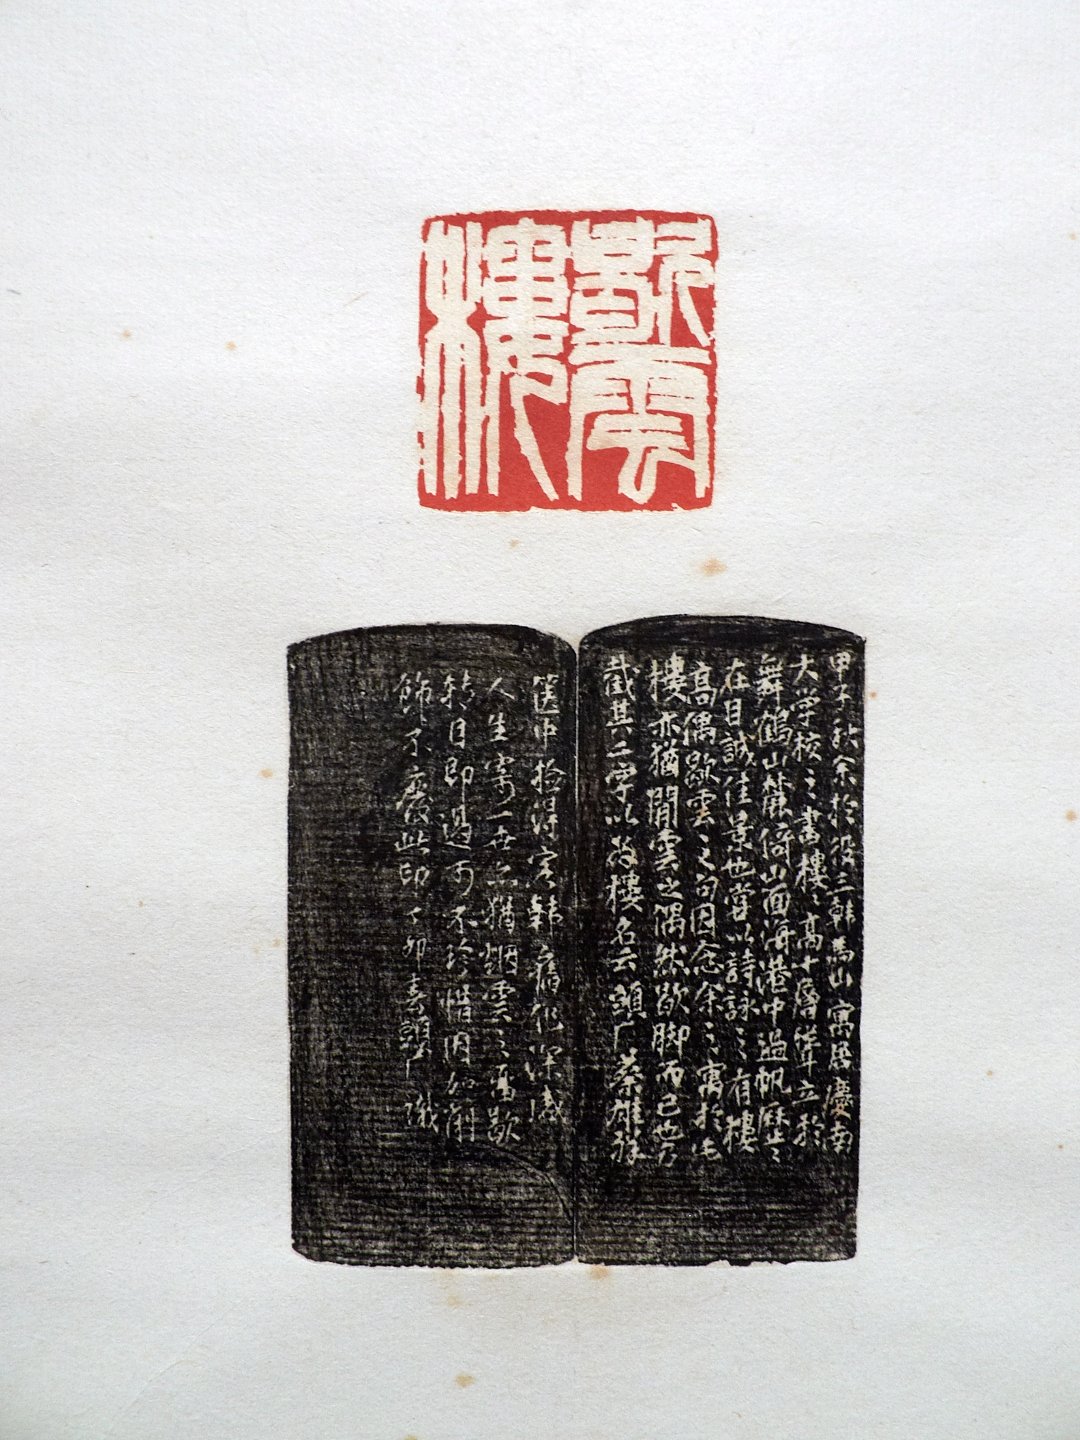 歇雲
樓
甲子秋余於役三韓馬山寓居慶南
大学校之書樓々高十層聳立於
舞鶴山麓倚山面海港中過帆歷々
在目誠佳景也嘗以詩詠之有樓
高偶歇雲之句因念余之寓於此
樓亦猶閒雲之偶然歇脚而已也乃
截其二字以為樓名云頤厂蔡雄祥
篋中撿得寓韓舊作深感
人生寄一世亦猶烟雲之留歇
轉目即過可不珍惜因加削
飾不廢此印丁卯春頤厂識